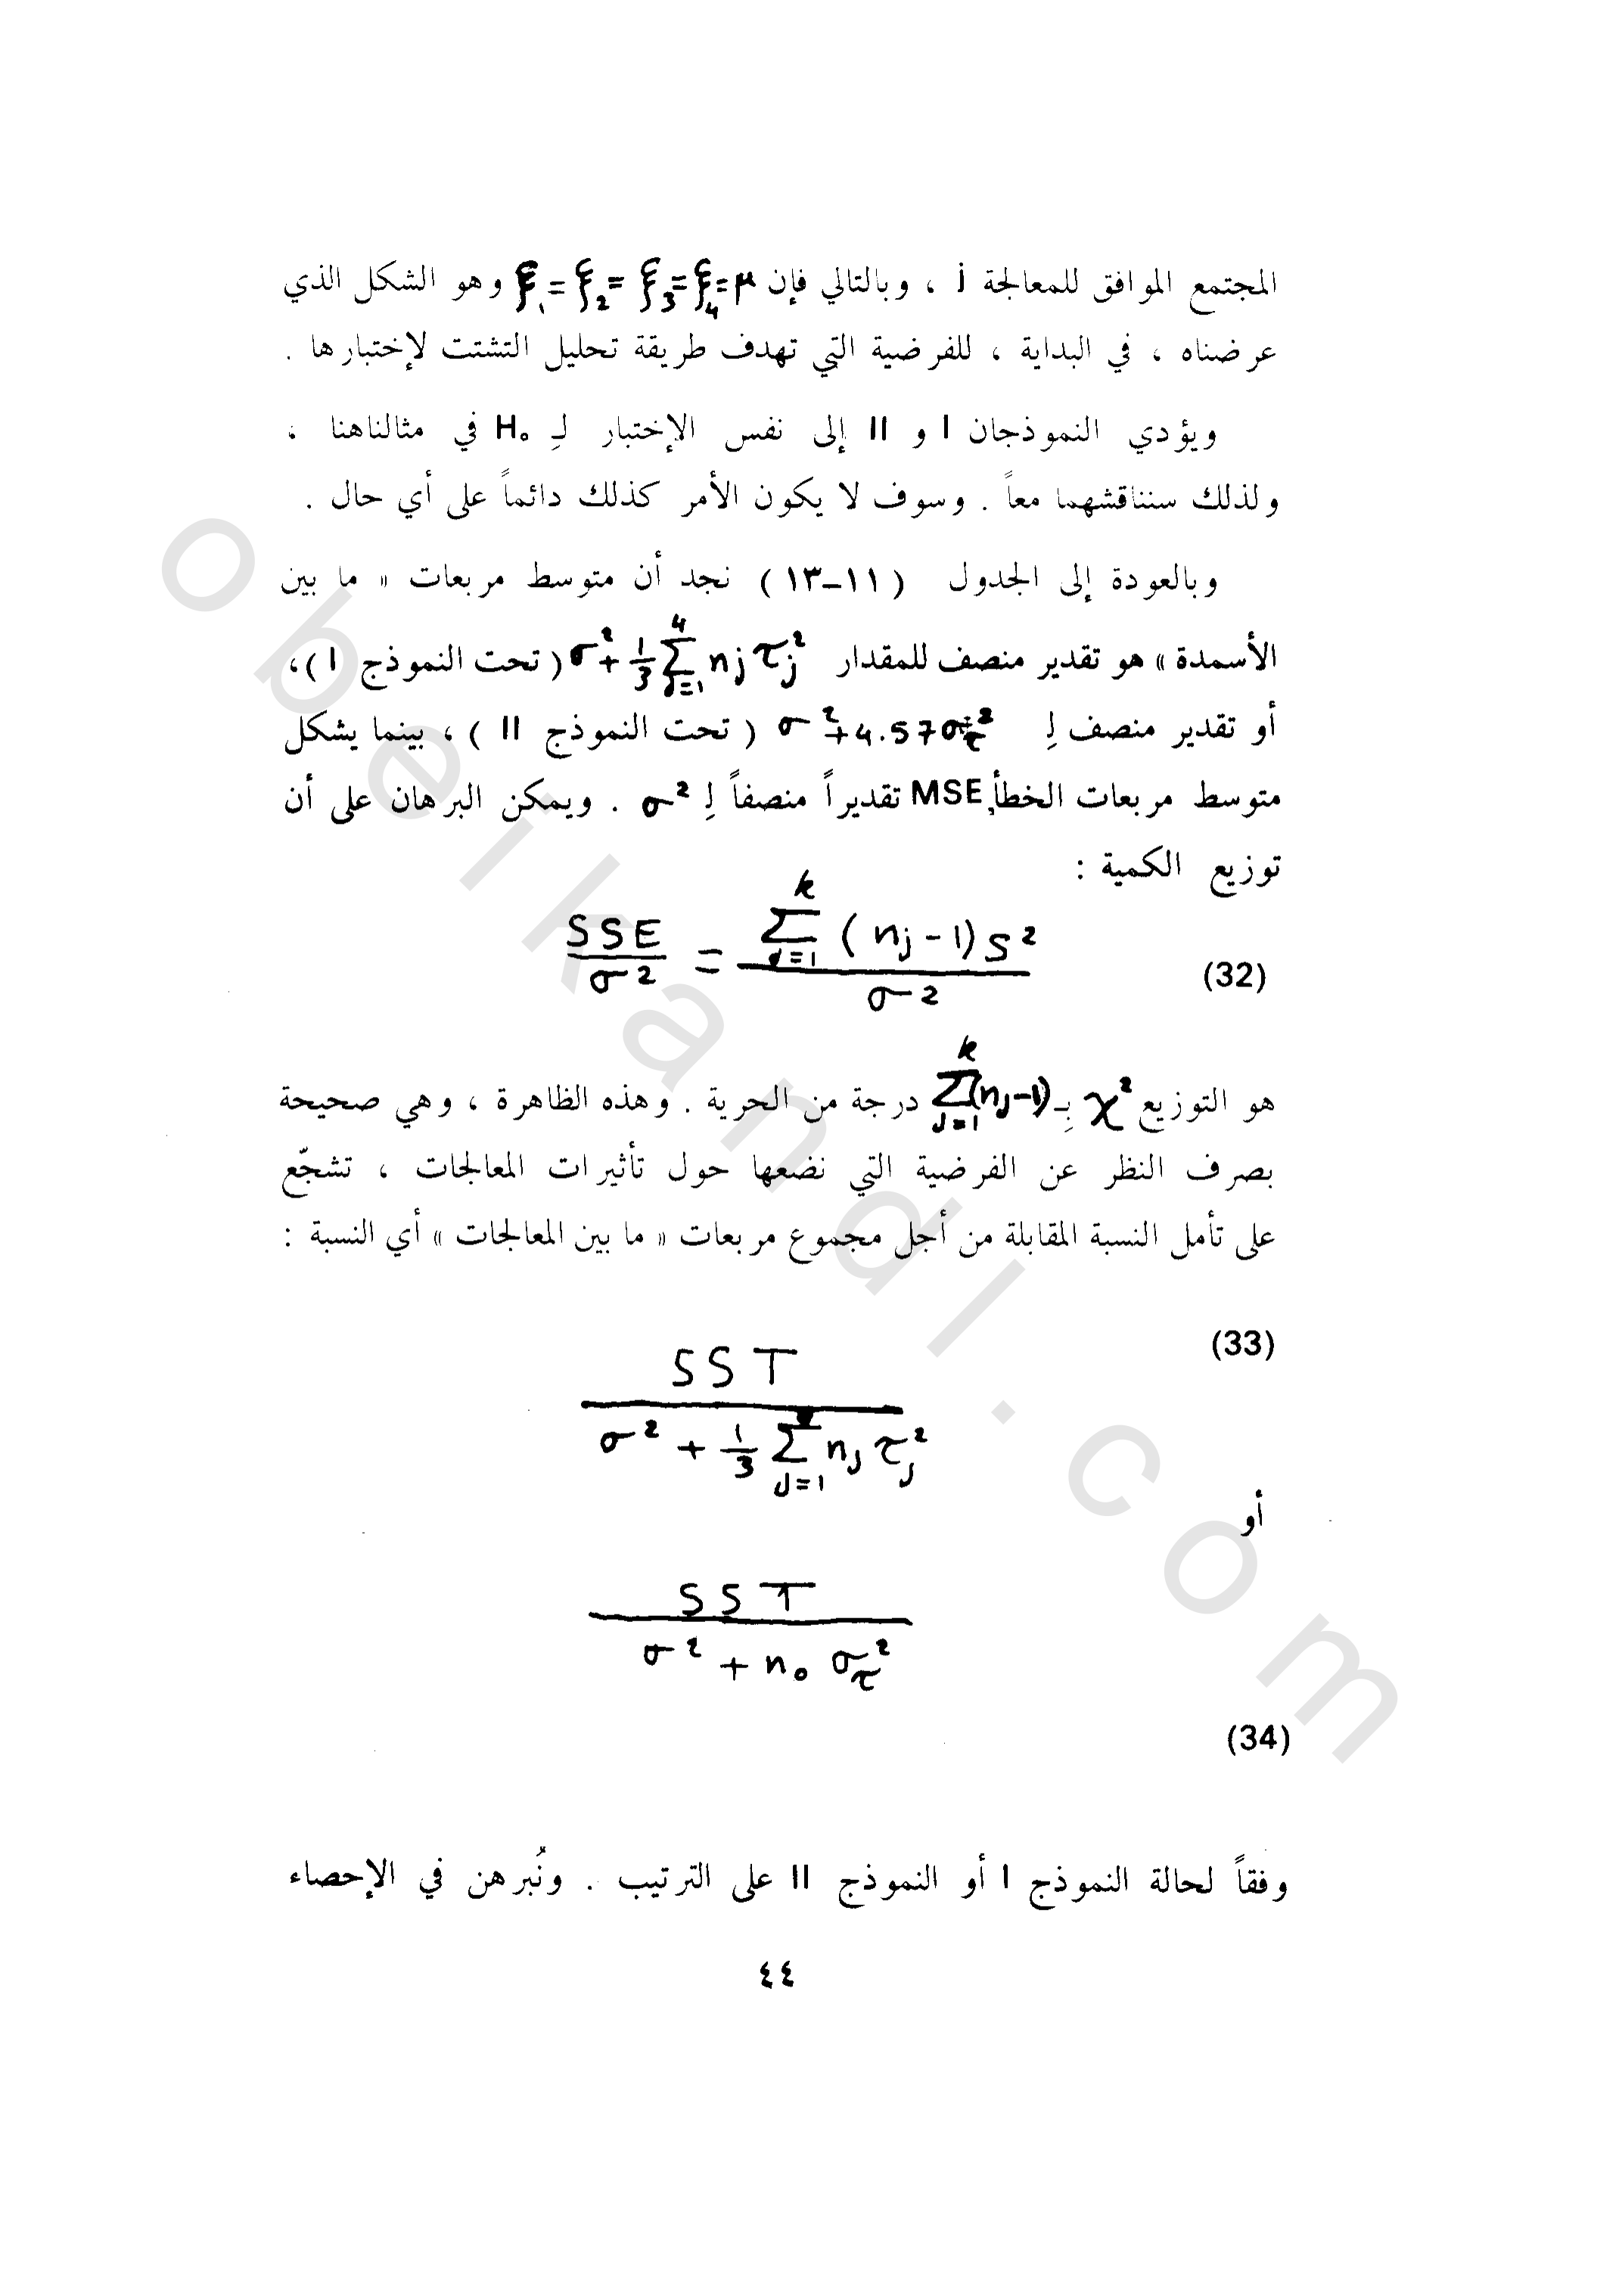 المجتمع الموافق للمعالجة j ، وبالتالي فإن ξ₁ = ξ₂ = ξ₃ = ξ₄ = μ وهو الشكل الذي
عرضناه ، في البداية ، للفرضية التي تهدف طريقة تحليل التشتت لإختبارها .
ويؤدي النموذجان I و II إلى نفس الإختبار لـِ H₀ في مثالناهنا ،
ولذلك سنناقشهما معاً . وسوف لا يكون الأمر كذلك دائماً على أي حال .
وبالعودة إلى الجدول ( ١١–١٣ ) نجد أن متوسط مربعات « ما بين
الأسمدة » هو تقدير منصف للمقدار σ² + 1/3 Σ_{j=1}^{4} nj τj² ( تحت النموذج I ) ،
أو تقدير منصف لـِ σ² + 4.57στ² ( تحت النموذج II ) ، بينما يشكل
متوسط مربعات الخطأ, MSE تقديراً منصفاً لـِ σ² . ويمكن البرهان على أن
توزيع الكمية :
SSE/σ² = Σ_{j=1}^{k} (nj - 1) S² / σ² (32)
هو التوزيع χ² بِـ Σ_{j=1}^{k} (nj-1) درجة من الحرية . وهذه الظاهرة ، وهي صحيحة
بصرف النظر عن الفرضية التي نضعها حول تأثيرات المعالجات ، تشجّع
على تأمل النسبة المقابلة من أجل مجموع مربعات « ما بين المعالجات » أي النسبة :
(33)
SST / (σ² + 1/3 Σ_{j=1} nj τj²)
أو
SST / (σ² + n₀ στ²)
(34)
وفقاً لحالة النموذج I أو النموذج II على الترتيب . ونُبرهن في الإحصاء
٤٤
obeikandl.com